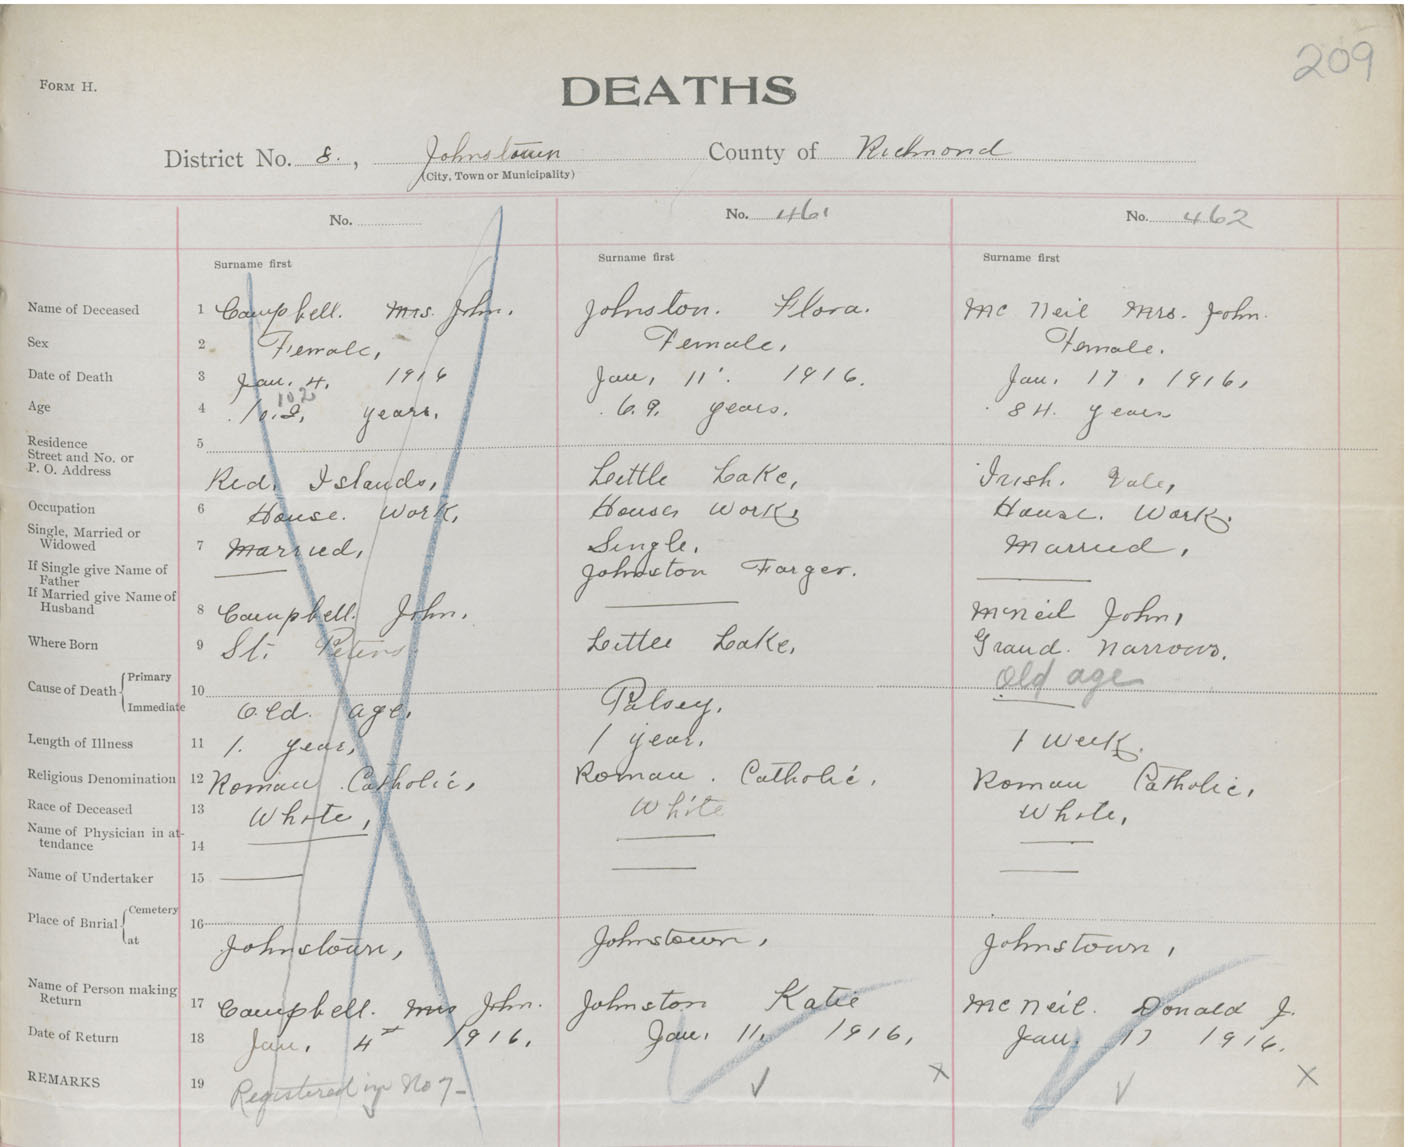 209
FORM H.
DEATHS
District No. 8. , Johnstown County of Richmond
(City, Town or Municipality)
No. No. 461 No. 462
Surname first Surname first Surname first
Name of Deceased 1 Campbell. Mrs. John. Johnston. Flora. Mc Neil Mrs. John.
Sex 2 Female, Female, Female.
Date of Death 3 Jan. 4, 1916 Jan, 11'. 1916. Jan, 17, 1916,
102
Age 4 102, years. 69. years. 84. years
Residence 5
Street and No. or
P. O. Address Red. Islands, Little Lake, Irish. Vale,
Occupation 6 House. Work, House Work, House. Work.
Single, Married or
Widowed 7 Married, Single, Married,
If Single give Name of
Father Johnston Farger.
If Married give Name of
Husband 8 Campbell. John. McNeil John,
Where Born 9 St. Peters. Little Lake, Grand. Narrows.
Cause of Death Primary 10 Old age
Immediate Old. age. Palsey,
Length of Illness 11 1. year, 1 year. 1 Week.
Religious Denomination 12 Roman Catholic, Roman. Catholic. Roman Catholic,
Race of Deceased 13 White, White White,
Name of Physician in at-
tendance 14
Name of Undertaker 15
Place of Burial Cemetery 16
at Johnstown, Johnstown, Johnstown,
Name of Person making
Return 17 Campbell. Mrs John. Johnston Katie Mc Neil. Donald J.
Date of Return 18 Jan, 4th 1916, Jan. 11, 1916, Jan. 17 1916.
REMARKS 19 Registered in No 7 x x